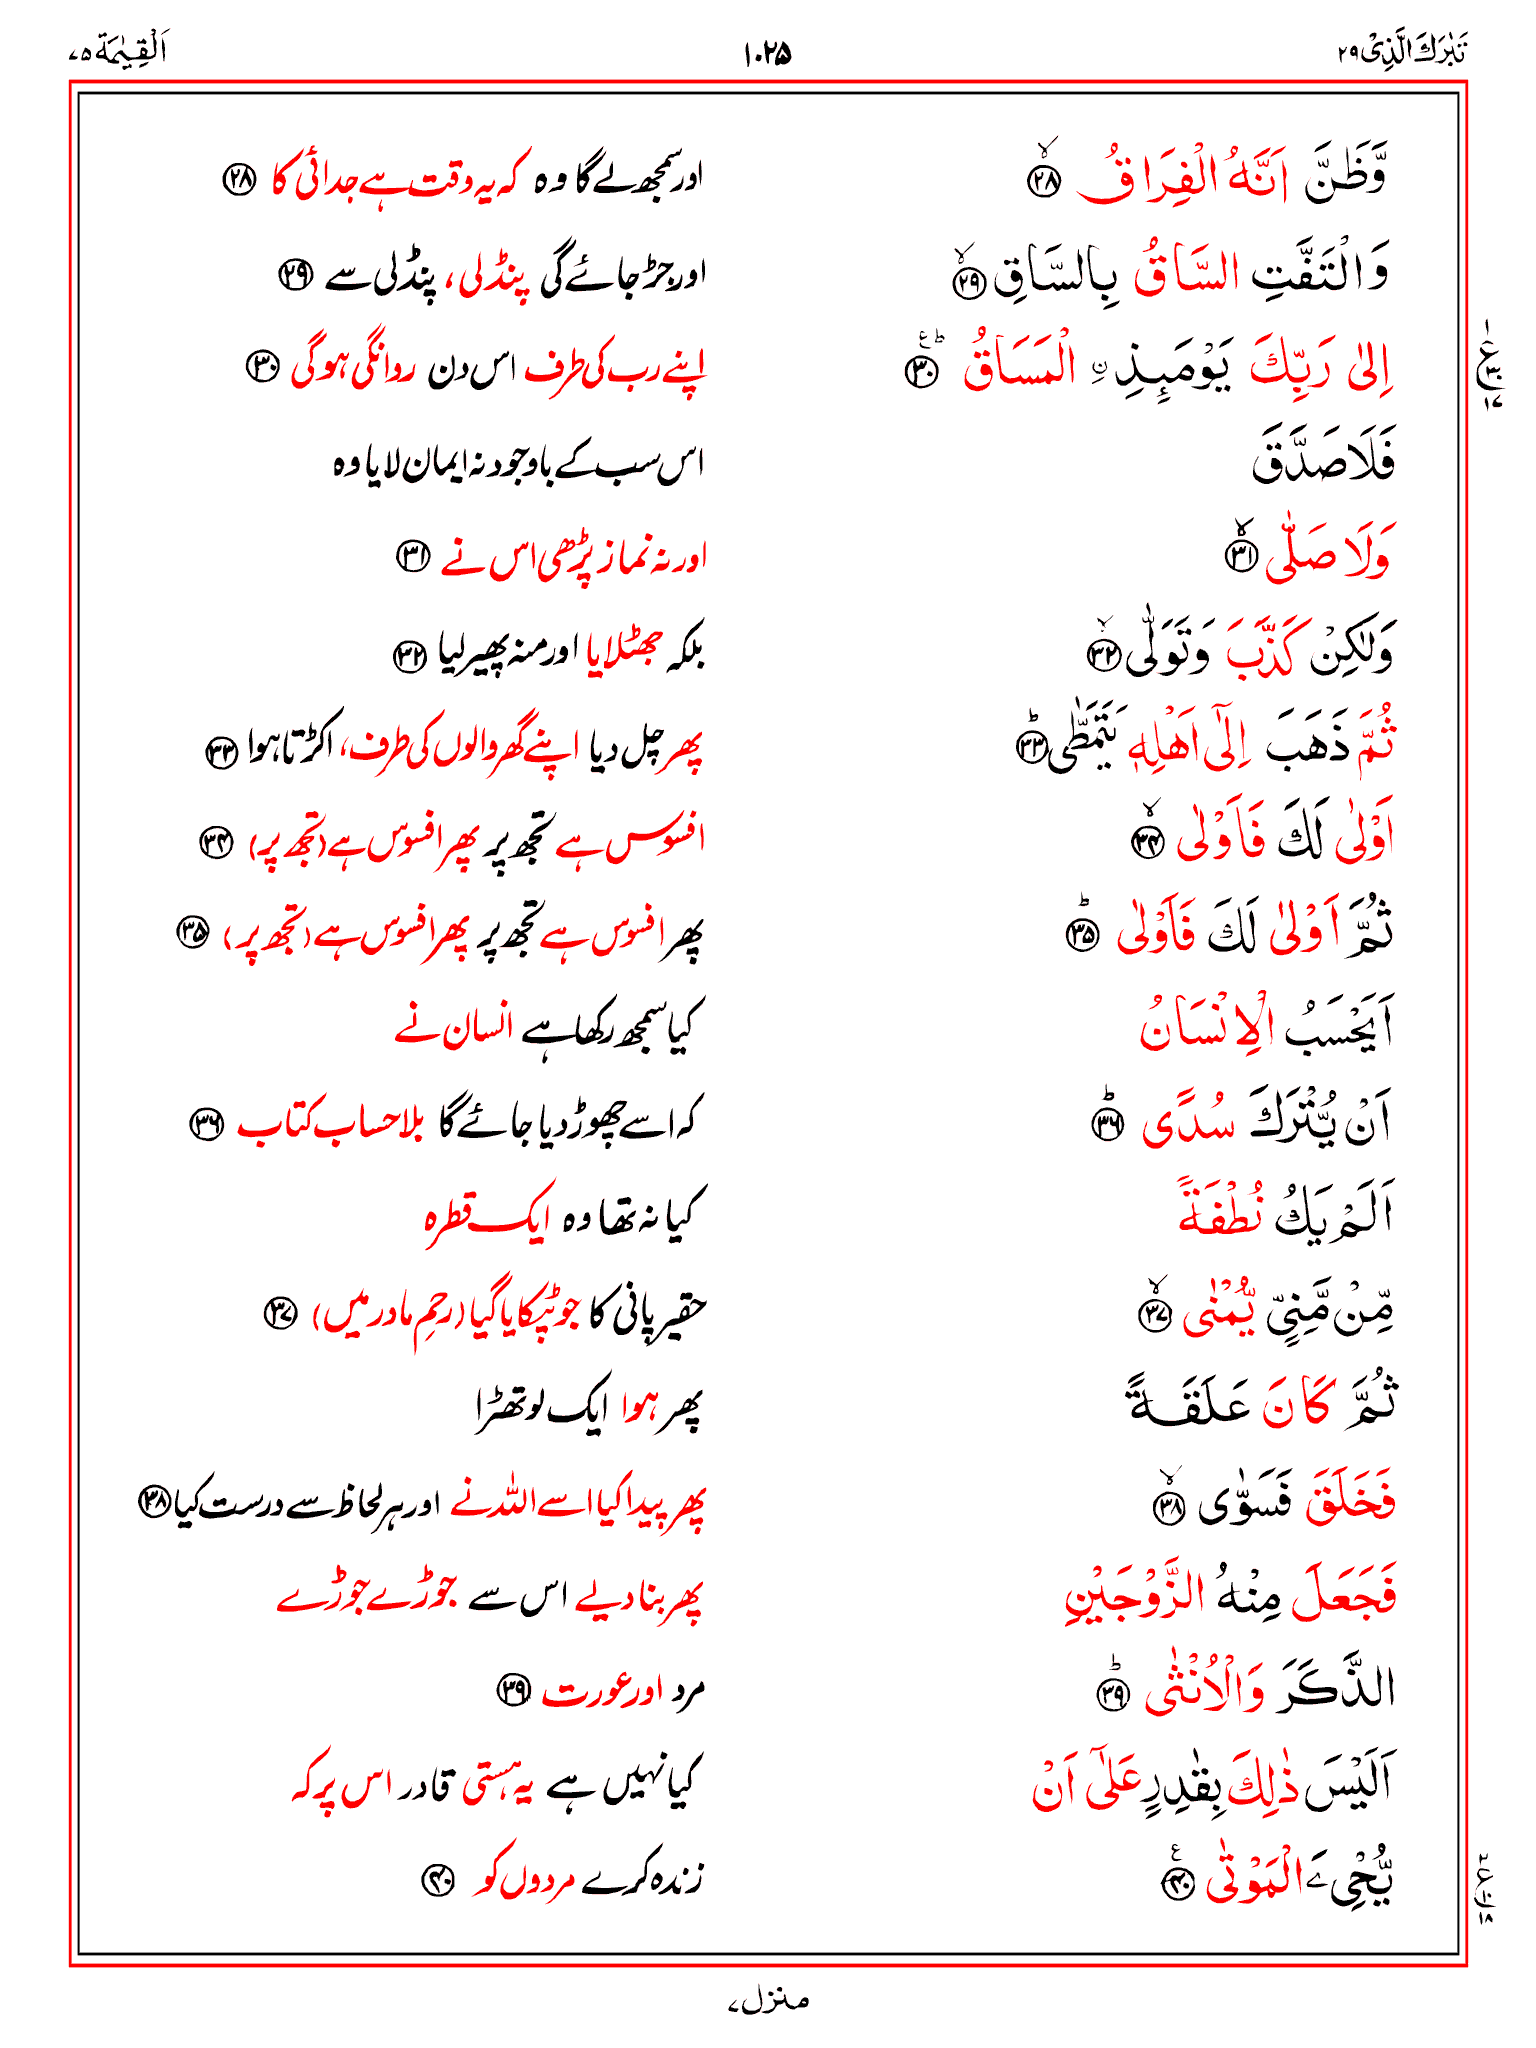 تَبٰرَكَ الَّذِیْ ۲۹
۱۰۲۵
اَلْقِیٰمَة ۷۵
وَّظَنَّ اَنَّهُ الْفِرَاقُ ۙ‏﴿۲۸﴾ اور سمجھ لے گا وہ کہ یہ وقت ہے جدائی کا ﴿۲۸﴾
وَالْتَفَّتِ السَّاقُ بِالسَّاقِ ۙ﴿۲۹﴾ اور جڑ جائے گی پنڈلی، پنڈلی سے ﴿۲۹﴾
اِلٰى رَبِّكَ یَوْمَىِٕذِ ِ۟الْمَسَاقُ ؕ﴿۳۰﴾ اپنے رب کی طرف اس دن روانگی ہوگی ﴿۳۰﴾
ع
۱
۳۰
۱۷
فَلَا صَدَّقَ اس سب کے باوجود نہ ایمان لایا وہ
وَلَا صَلّٰى ۙ﴿۳۱﴾ اور نہ نماز پڑھی اس نے ﴿۳۱﴾
وَلٰكِنْ كَذَّبَ وَتَوَلّٰى ۙ﴿۳۲﴾ بلکہ جھٹلایا اور منہ پھیر لیا ﴿۳۲﴾
ثُمَّ ذَهَبَ اِلٰٓى اَهْلِهٖ یَتَمَطّٰى ؕ﴿۳۳﴾ پھر چل دیا اپنے گھر والوں کی طرف، اکڑتا ہوا ﴿۳۳﴾
اَوْلٰى لَكَ فَاَوْلٰى ۙ﴿۳۴﴾ افسوس ہے تجھ پر پھر افسوس ہے (تجھ پر) ﴿۳۴﴾
ثُمَّ اَوْلٰى لَكَ فَاَوْلٰى ؕ﴿۳۵﴾ پھر افسوس ہے تجھ پر پھر افسوس ہے (تجھ پر) ﴿۳۵﴾
اَیَحْسَبُ الْاِنْسَانُ کیا سمجھ رکھا ہے انسان نے
اَنْ یُّتْرَكَ سُدًى ؕ﴿۳۶﴾ کہ اسے چھوڑ دیا جائے گا بلا حساب کتاب ﴿۳۶﴾
اَلَمْ یَكُ نُطْفَةً کیا نہ تھا وہ ایک قطرہ
مِّنْ مَّنِیٍّ یُّمْنٰى ۙ﴿۳۷﴾ حقیر پانی کا جو ٹپکایا گیا (رحمِ مادر میں) ﴿۳۷﴾
ثُمَّ كَانَ عَلَقَةً پھر ہوا ایک لوتھڑا
فَخَلَقَ فَسَوّٰى ۙ﴿۳۸﴾ پھر پیدا کیا اسے اللہ نے اور ہر لحاظ سے درست کیا ﴿۳۸﴾
فَجَعَلَ مِنْهُ الزَّوْجَیْنِ پھر بنا دیے اس سے جوڑے جوڑے
الذَّكَرَ وَالْاُنْثٰى ؕ﴿۳۹﴾ مرد اور عورت ﴿۳۹﴾
اَلَیْسَ ذٰلِكَ بِقٰدِرٍ عَلٰٓى اَنْ کیا نہیں ہے یہ ہستی قادر اس پر کہ
یُّحْیِۦَ الْمَوْتٰى ۧ﴿۴۰﴾ زندہ کرے مردوں کو ﴿۴۰﴾
ع
۲
۱۰
۱۸
منزل ۷